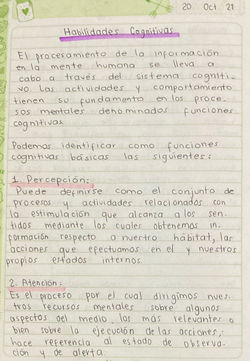 20 Oct 21
Habilidades Cognitivas
El procesamiento de la información
en la mente humana se lleva a
cabo a través del sistema cogniti-
vo. Las actividades y comportamiento
tienen su fundamento en los proce-
sos mentales denominados funciones
cognitivas
Podemos identificar como funciones
cognitivas básicas las siguientes:
1. Percepción:
Puede definirse como el conjunto de
procesos y actividades relacionados con
la estimulación que alcanza a los sen-
tidos mediante los cuales obtenemos in-
formación respecto a nuestro hábitat, las
acciones que efectuamos en el y nuestros
propios estados internos
2. Atención:
Es el proceso por el cual dirigimos nues-
tros recursos mentales sobre algunos
aspectos del medio, los más relevantes o
bien sobre la ejecución de las acciones,
hace referencia al estado de observa-
ción y de alerta.